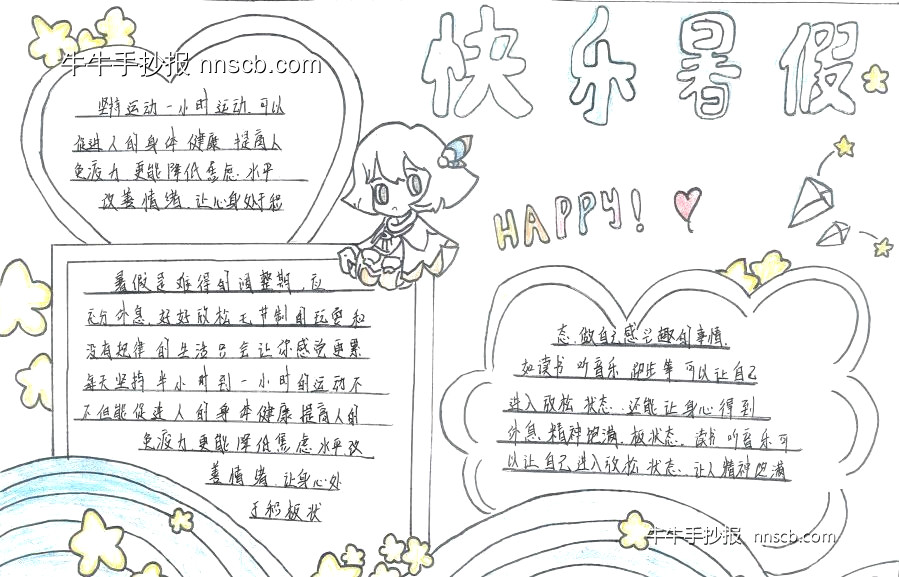 快乐暑假
牛牛手抄报 nnscb.com
坚持运动一小时运动,可以
促进人的身体健康 提高人
免疫力 更能降低焦虑 水平
改善情绪,让心身处于积
HAPPY!
暑假是难得的调整期,应
充分休息,好好放松 无节制的玩耍和
没有规律的生活只会让你感觉更累
每天坚持半小时到一小时的运动不
不但能促进人的身体健康提高人的
免疫力 更能降低焦虑水平改
善情绪,让身心处
于积极状
态,做自己感兴趣的事情.
如读书 听音乐 跑步等 可以让自己
进入放松状态,还能让身心得到
休息,精神饱满,极状态,读书 听音乐可
以让自己进入放松状态,让人精神饱满
牛牛手抄报 nnscb.com